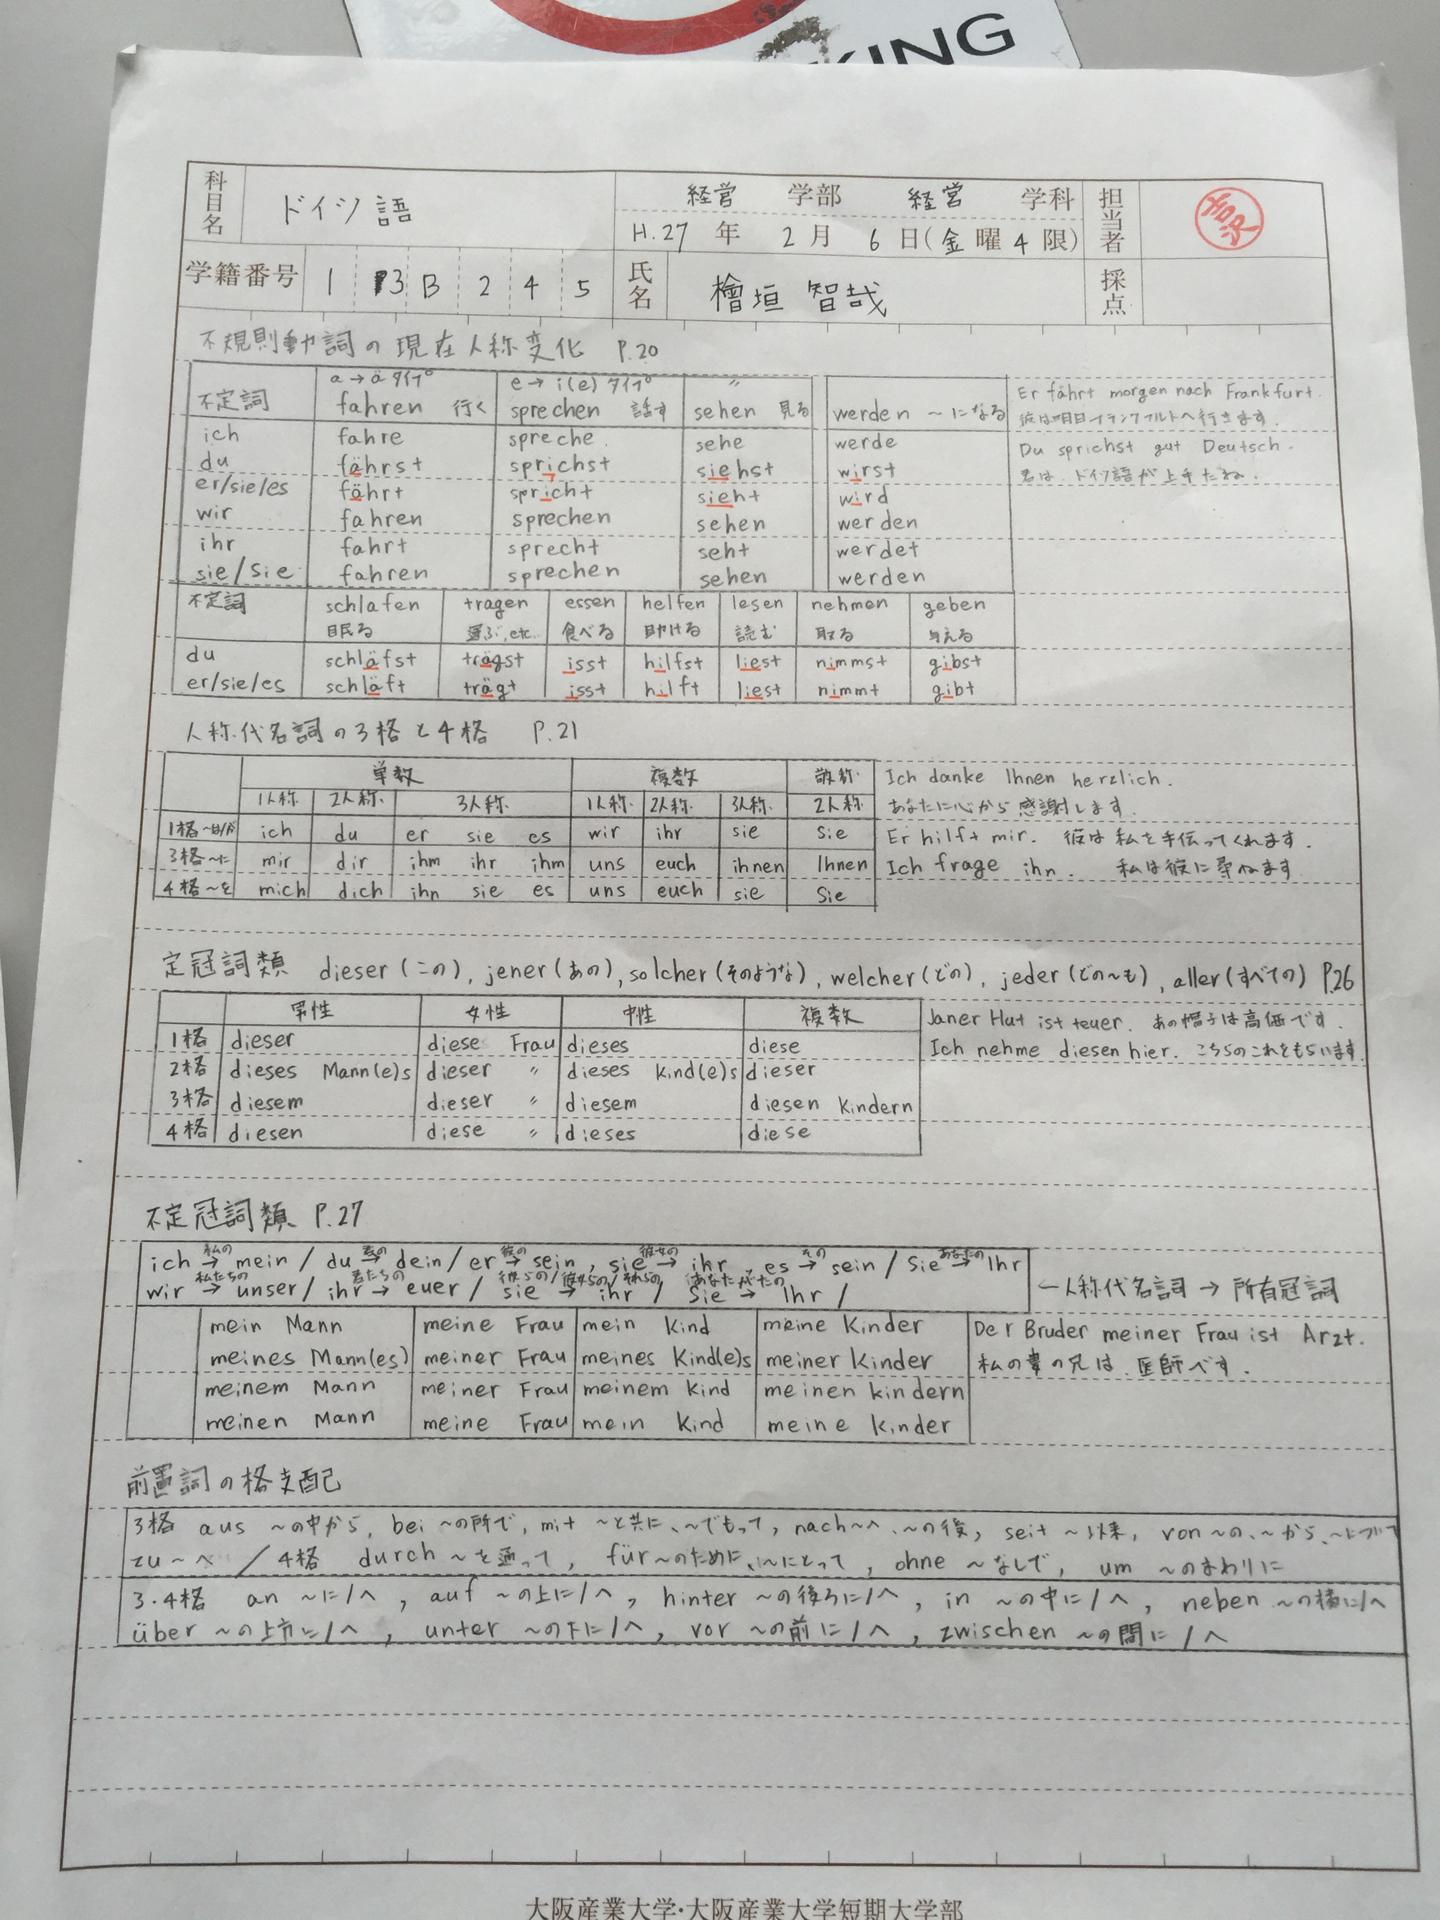 KING
科目名 ドイツ語 経営 学部 経営 学科 担当者 吉沢
H.27 年 2 月 6 日(金 曜 4 限)
学籍番号 1 13 B 2 4 5 氏名 檜垣 智哉 採点
不規則動詞の現在人称変化 P.20
a→äタイプ e→i(e)タイプ 〃
不定詞 fahren 行く sprechen 話す sehen 見る werden ~になる
Er fährt morgen nach Frankfurt.
彼は明日フランクフルトへ行きます.
ich fahre spreche. sehe werde
Du sprichst gut Deutsch.
du fährst sprichst siehst wirst
君は、ドイツ語が上手だね.
er/sie/es fährt spricht sieht wird
wir fahren sprechen sehen werden
ihr fahrt sprecht seht werdet
sie/Sie fahren sprechen sehen werden
不定詞 schlafen tragen essen helfen lesen nehmen geben
眠る 運ぶ,etc. 食べる 助ける 読む 取る 与える
du schläfst trägst isst hilfst liest nimmst gibst
er/sie/es schläft trägt isst hilft liest nimmt gibt
人称代名詞の3格と4格 P.21
単数 複数 敬称 Ich danke Ihnen herzlich.
1人称 2人称 3人称 1人称 2人称 3人称 2人称 あなたに心から感謝します.
1格~は/が ich du er sie es wir ihr sie Sie Er hilft mir. 彼は私を手伝ってくれます.
3格~に mir dir ihm ihr ihm uns euch ihnen Ihnen Ich frage ihn. 私は彼に尋ねます
4格~を mich dich ihn sie es uns euch sie Sie
定冠詞類 dieser(この), jener(あの), solcher(そのような), welcher(どの), jeder(どの~も), aller(すべての) P.26
男性 女性 中性 複数 Janer Hut ist teuer. あの帽子は高価です.
1格 dieser diese Frau dieses diese Ich nehme diesen hier. こちらのこれをもらいます
2格 dieses Mann(e)s dieser 〃 dieses Kind(e)s dieser
3格 diesem dieser 〃 diesem diesen Kindern
4格 diesen diese 〃 dieses diese
不定冠詞類 P.27
私の 君の 彼の 彼女の その あなたの
ich → mein / du → dein / er → sein , sie → ihr , es → sein / Sie → Ihr
私たちの 君たちの 彼らの/彼女らの/それらの あなたがたの
wir → unser / ihr → euer / sie → ihr / Sie → Ihr /
←人称代名詞 → 所有冠詞
mein Mann meine Frau mein Kind meine Kinder Der Bruder meiner Frau ist Arzt.
meines Mann(es) meiner Frau meines Kind(e)s meiner Kinder 私の妻の兄は、医師です.
meinem Mann meiner Frau meinem Kind meinen Kindern
meinen Mann meine Frau mein Kind meine Kinder
前置詞の格支配
3格 aus ~の中から, bei ~の所で, mit ~と共に、~でもって, nach~へ、~の後, seit ~以来, von~の、~から、
zu~へ / 4格 durch ~を通って, für~のために、~にとって, ohne ~なしで, um ~のまわりに
3・4格 an ~に/へ, auf ~の上に/へ, hinter ~の後ろに/へ, in ~の中に/へ, neben ~の横に/へ
über ~の上方に/へ, unter ~の下に/へ, vor ~の前に/へ, zwischen ~の間に/へ
大阪産業大学・大阪産業大学短期大学部